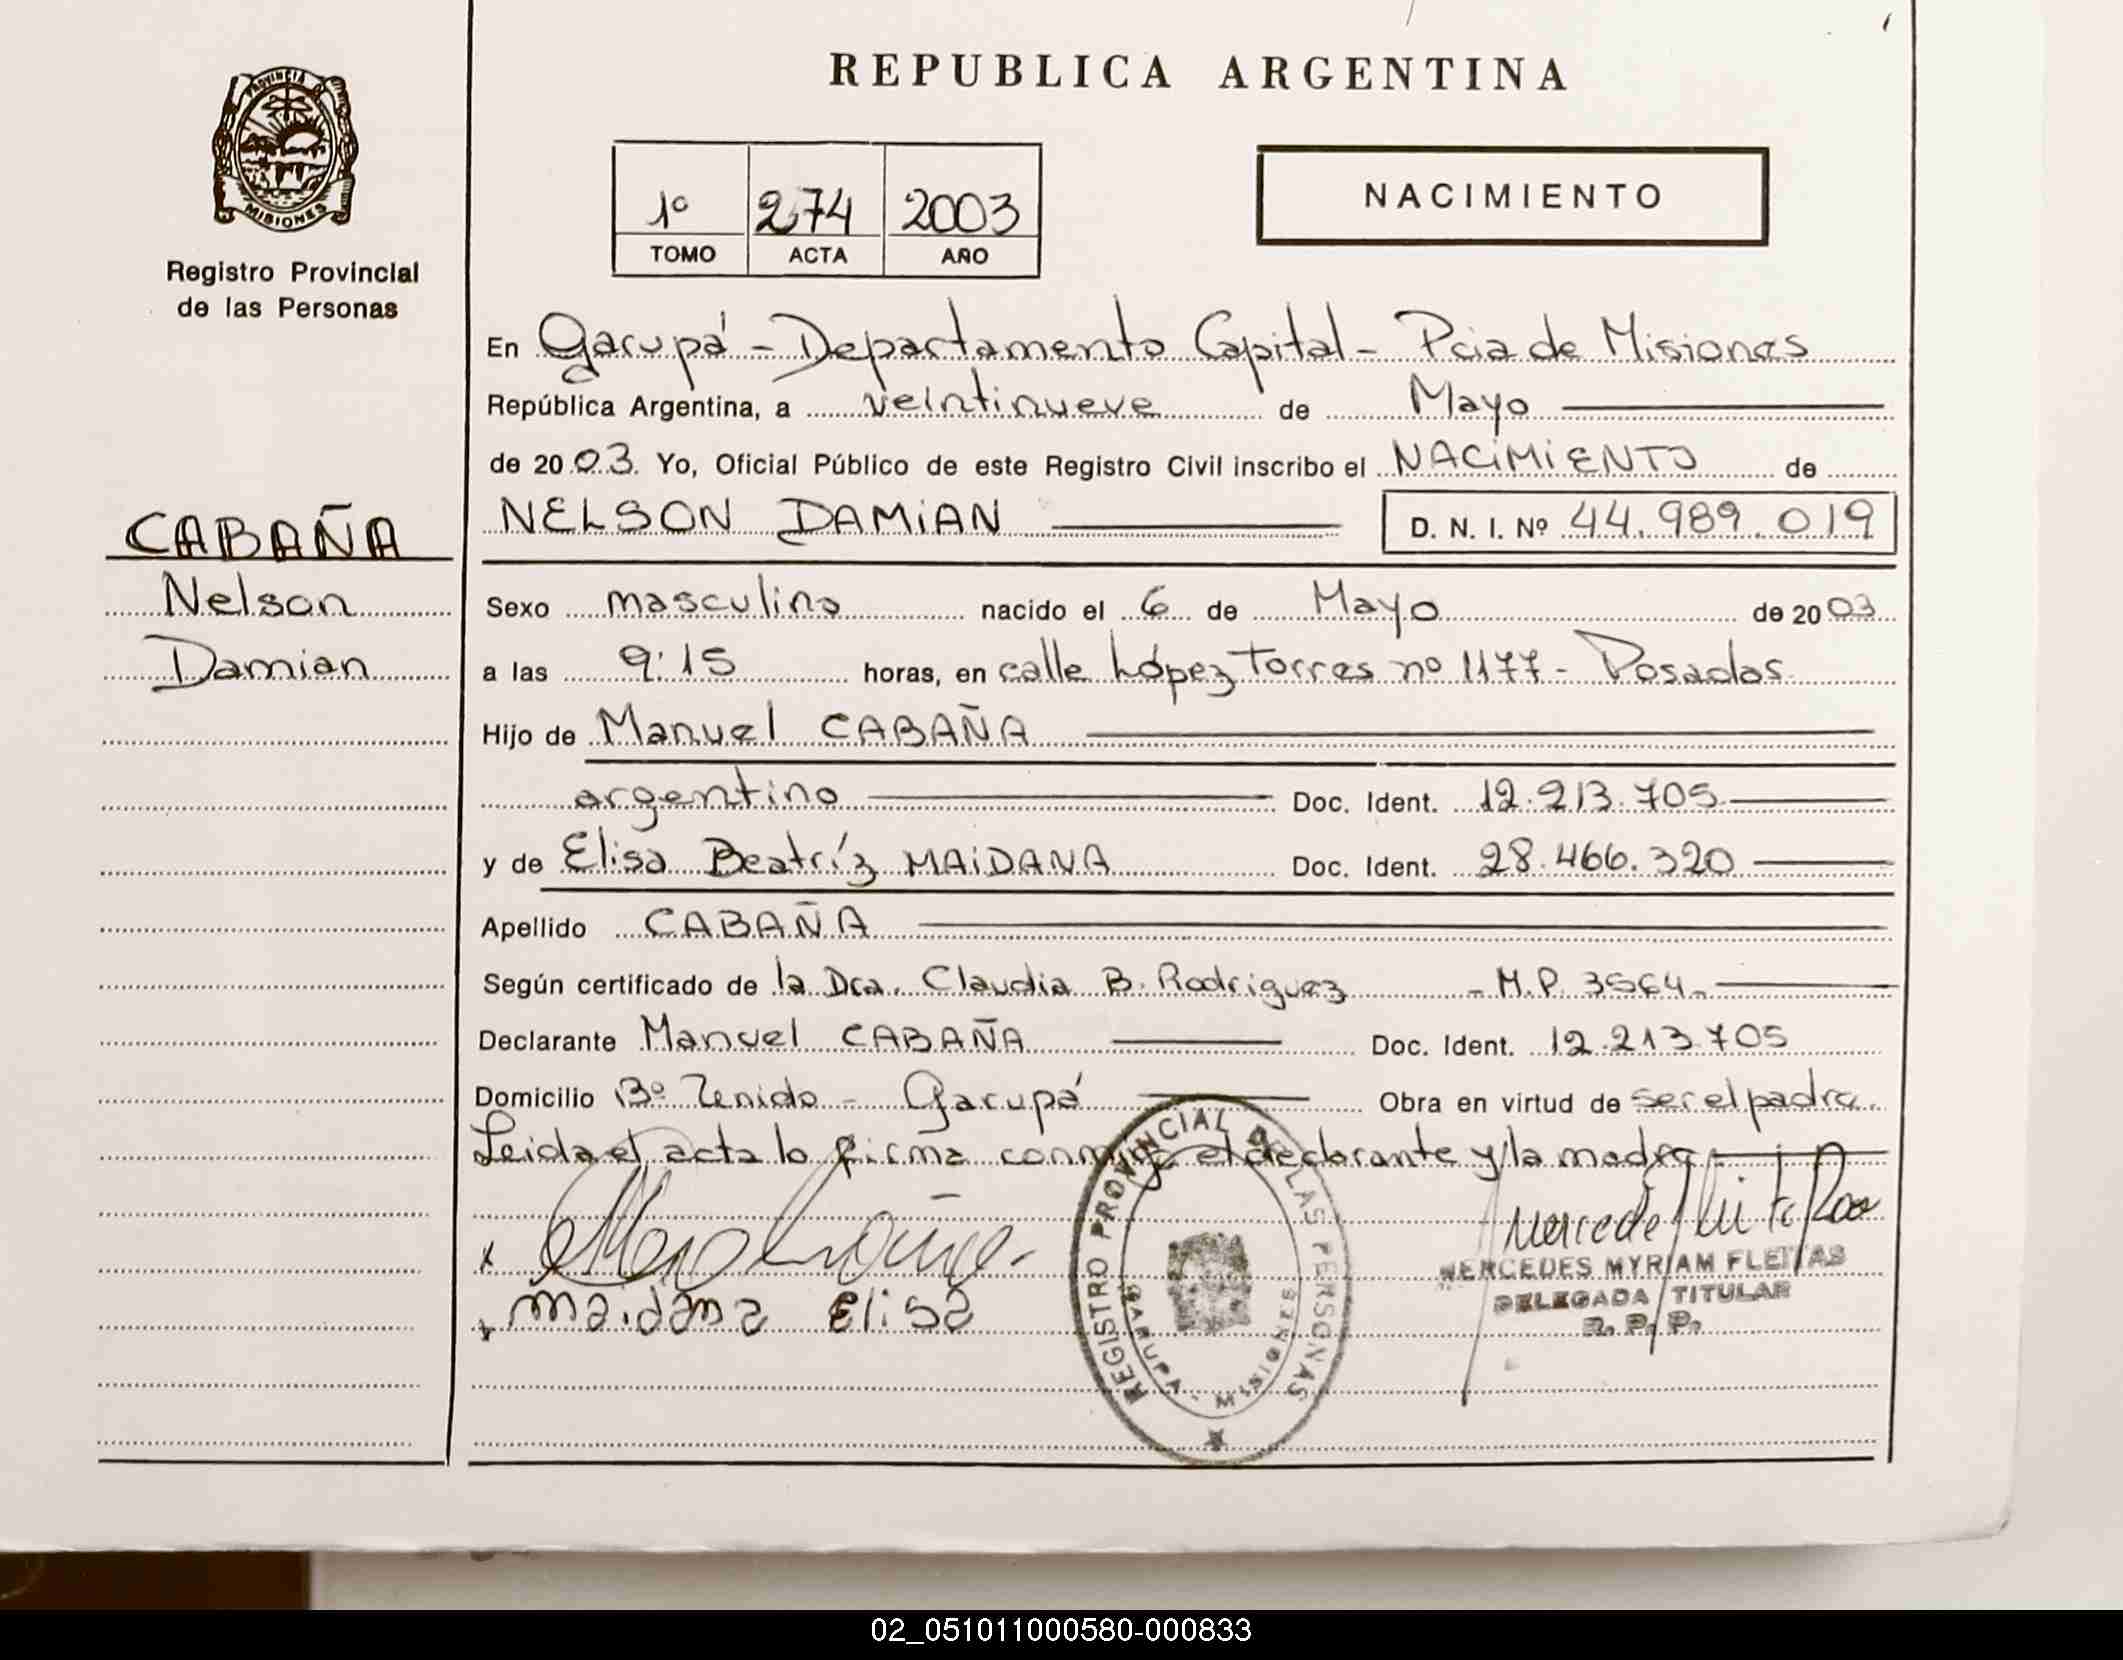 REPUBLICA ARGENTINA
PROVINCIA DE
MISIONES
Registro Provincial
de las Personas
1º 274 2003
TOMO ACTA AÑO
NACIMIENTO
En Garupá - Departamento Capital - Pcia de Misiones
República Argentina, a veintinueve de Mayo
de 2003. Yo, Oficial Público de este Registro Civil inscribo el NACIMIENTO de
NELSON DAMIAN D. N. I. Nº 44.989.019
CABAÑA
Nelson
Damian
Sexo masculino nacido el 6 de Mayo de 2003
a las 9:15 horas, en calle López Torres nº 1177 - Posadas
Hijo de Manuel CABAÑA
argentino Doc. Ident. 12.213.705
y de Elisa Beatríz MAIDANA Doc. Ident. 28.466.320
Apellido CABAÑA
Según certificado de la Dra. Claudia B. Rodriguez - M.P. 3564-
Declarante Manuel CABAÑA Doc. Ident. 12.213.705
Domicilio Bº Tenido - Garupá Obra en virtud de ser el padre.
Leida el acta lo firma conmigo el declarante y la madre
x
x Maidana Elisa
REGISTRO PROVINCIAL DE LAS PERSONAS
GARUPA - MISIONES
MERCEDES MYRIAM FLEITAS
DELEGADA TITULAR
R. P. P.
02_051011000580-000833